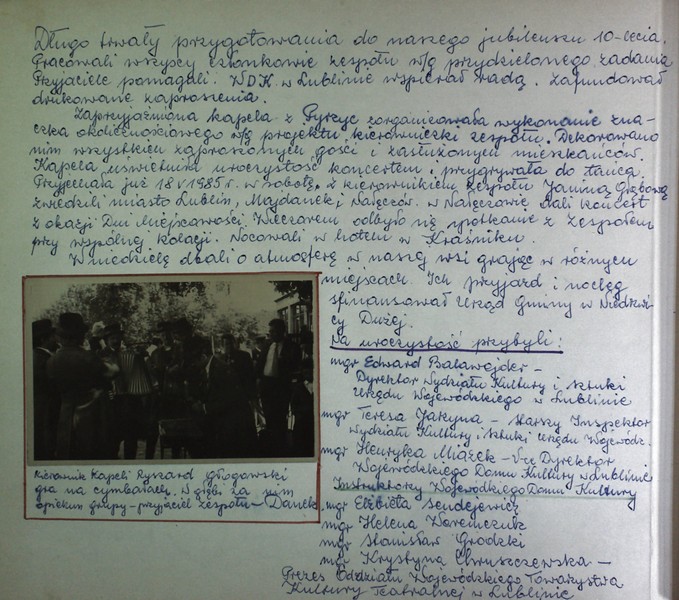 Długo trwały przygotowania do naszego jubileuszu 10-lecia.
Pracowali wszyscy członkowie zespołu w/g przydzielonego zadania
Przyjaciele pomagali. WDK w Lublinie wspierał radą. Zafundował
drukowane zaproszenia.
Zaprzyjaźniona kapela z Pyrzyc zorganizowała wykonanie zna-
czka okolicznościowego w/g projektu kierowniczki zespołu. Dekorowano
nim wszystkich zaproszonych gości i zasłużonych mieszkańców.
Kapela uświetniła uroczystość koncertem i przygrywała do tańca.
Przyjechała już 18 V 1985 r. w sobotę. Z kierownikiem zespołu Janiną
zwiedzili miasto Lublin, Majdanek i Nałęczów. W Nałęczowie dali koncert
z okazji Dni Miejscowości. Wieczorem odbyło się spotkanie z zespołem
przy wspólnej kolacji. Nocowali w hotelu w Kraśniku.
W niedzielę dbali o atmosferę w naszej wsi grając w różnych
miejscach. Ich przyjazd i nocleg
sfinansował Urząd Gminy w Niedrzwi-
cy Dużej.
Na uroczystość przybyli:
mgr Edward Balawejder -
Dyrektor Wydziału Kultury i Sztuki
Urzędu Wojewódzkiego w Lublinie
mgr Teresa - Starszy Inspektor
Wydziału Kultury i Sztuki Urzędu Wojewódz.
mgr Henryka Miażek - V-ce Dyrektor
Wojewódzkiego Domu Kultury w Lublinie
Instruktorzy Wojewódzkiego Domu Kultury
mgr Elżbieta
mgr Helena Weremczuk
mgr Stanisław Grodzki
mgr Krystyna Chruszczewska -
Prezes Oddziału Wojewódzkiego Towarzystwa
Kultury Teatralnej w Lublinie
Kierownik Kapeli Ryszard Głogowski
gra na cymbałach. W głębi za nim
opiekun grupy - przyjaciel zespołu - Danek